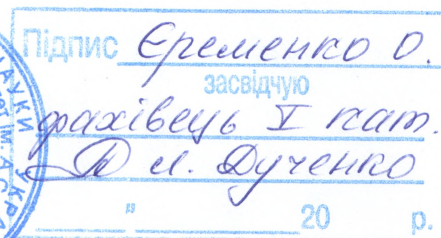 Підпис Єременко О.
засвідчую
фахівець I кат.
Л. Дученко
" 20 р.